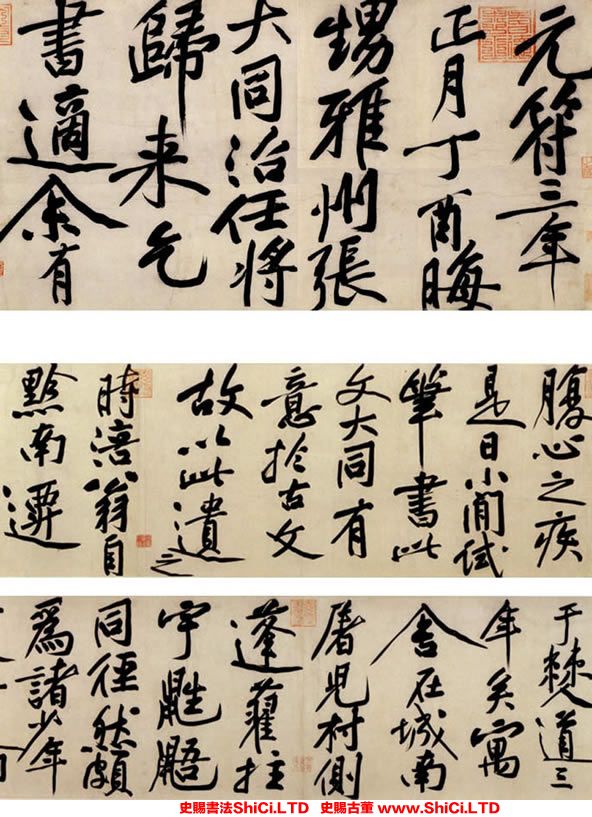 元符三年
正月丁酉晦
甥雅州張
大同治任將
歸来乞
書適余有
腹心之疾
是日小閒試
筆書此
文大同有
意於古文
故以此遺之
時涪翁自
黔南遷
于棘道三
年矣寓
舍在城南
屠兒村側
蓬藋拄
宇鼪鼯
同徑然頗
爲諸少年
史賜書法ShiCi.LTD 史賜古董 www.ShiCi.LTD